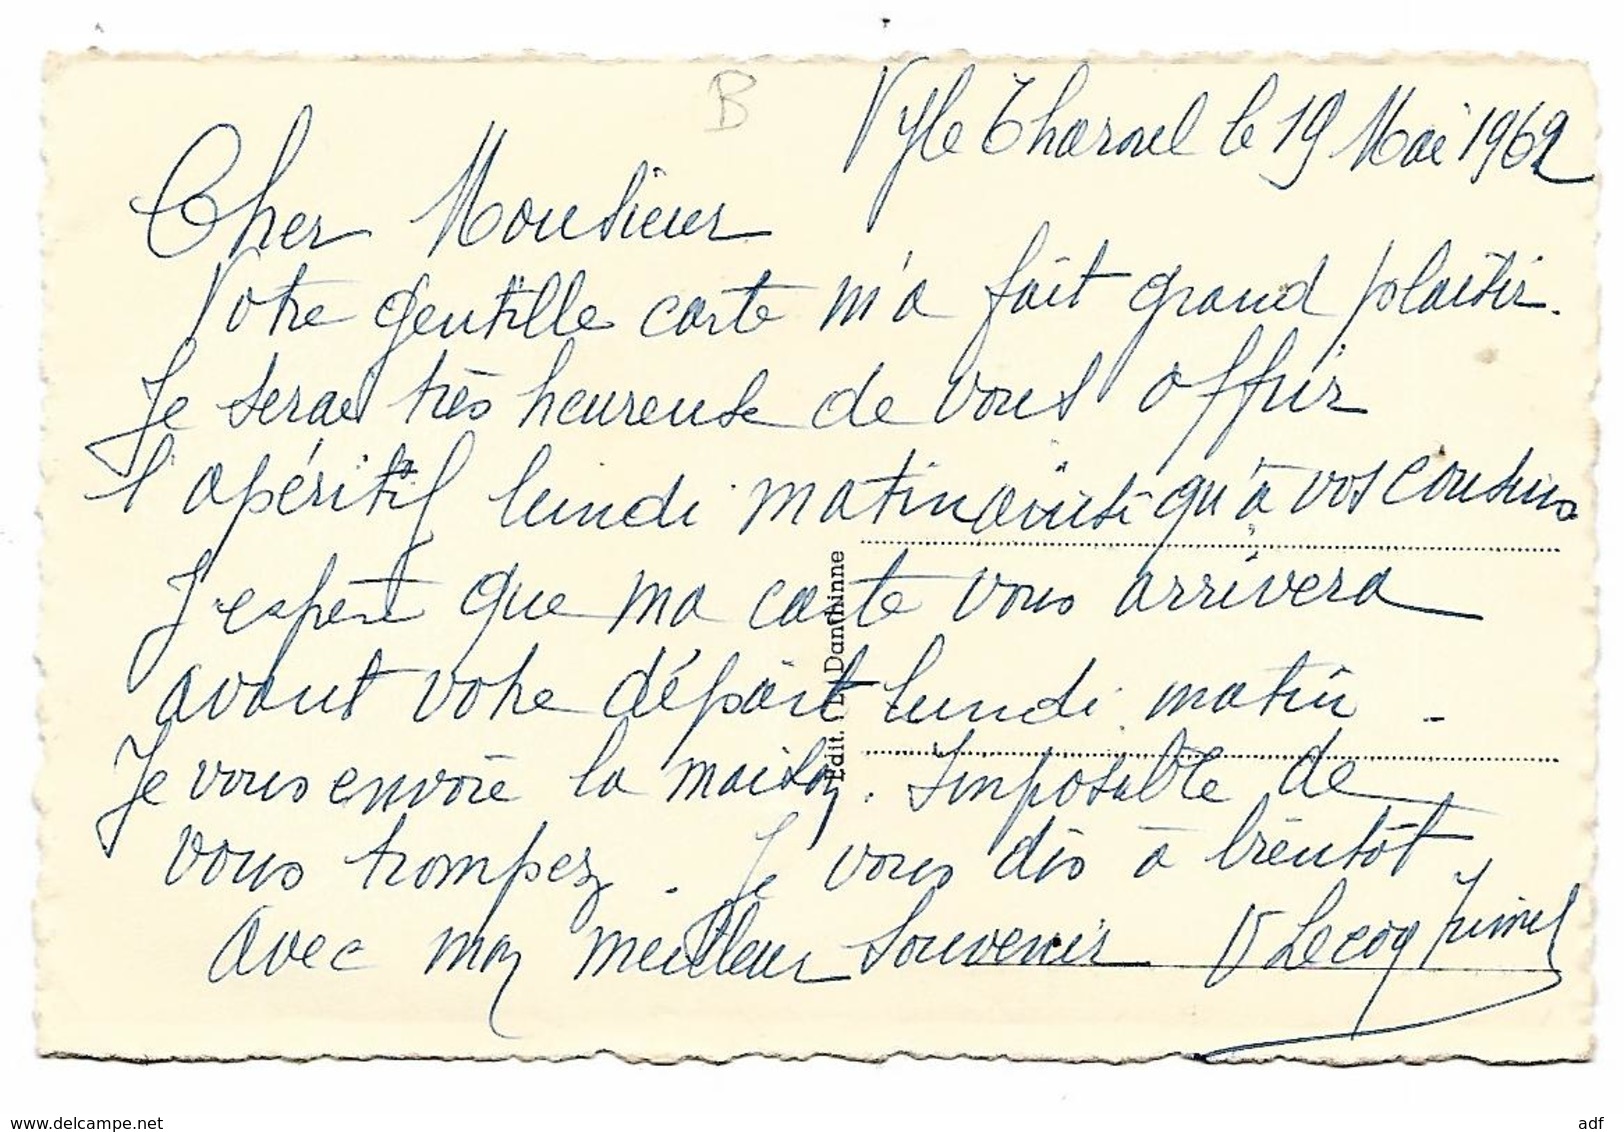 B
Vyle Tharoul le 19 Mai 1962
Cher Monsieur
Votre gentille carte m'a fait grand plaisir.
Je serai très heureuse de vous offrir
l'apéritif lundi matin ainsi qu'à vos cousins
J'espère que ma carte vous arrivera
avant votre départ lundi matin.
Je vous envoie la maison. Impossible de
vous trompez. Je vous dis à bientôt
avec mon meilleur Souvenir V Lecoq
Edit. : Danthinne
www.delcampe.net
adf